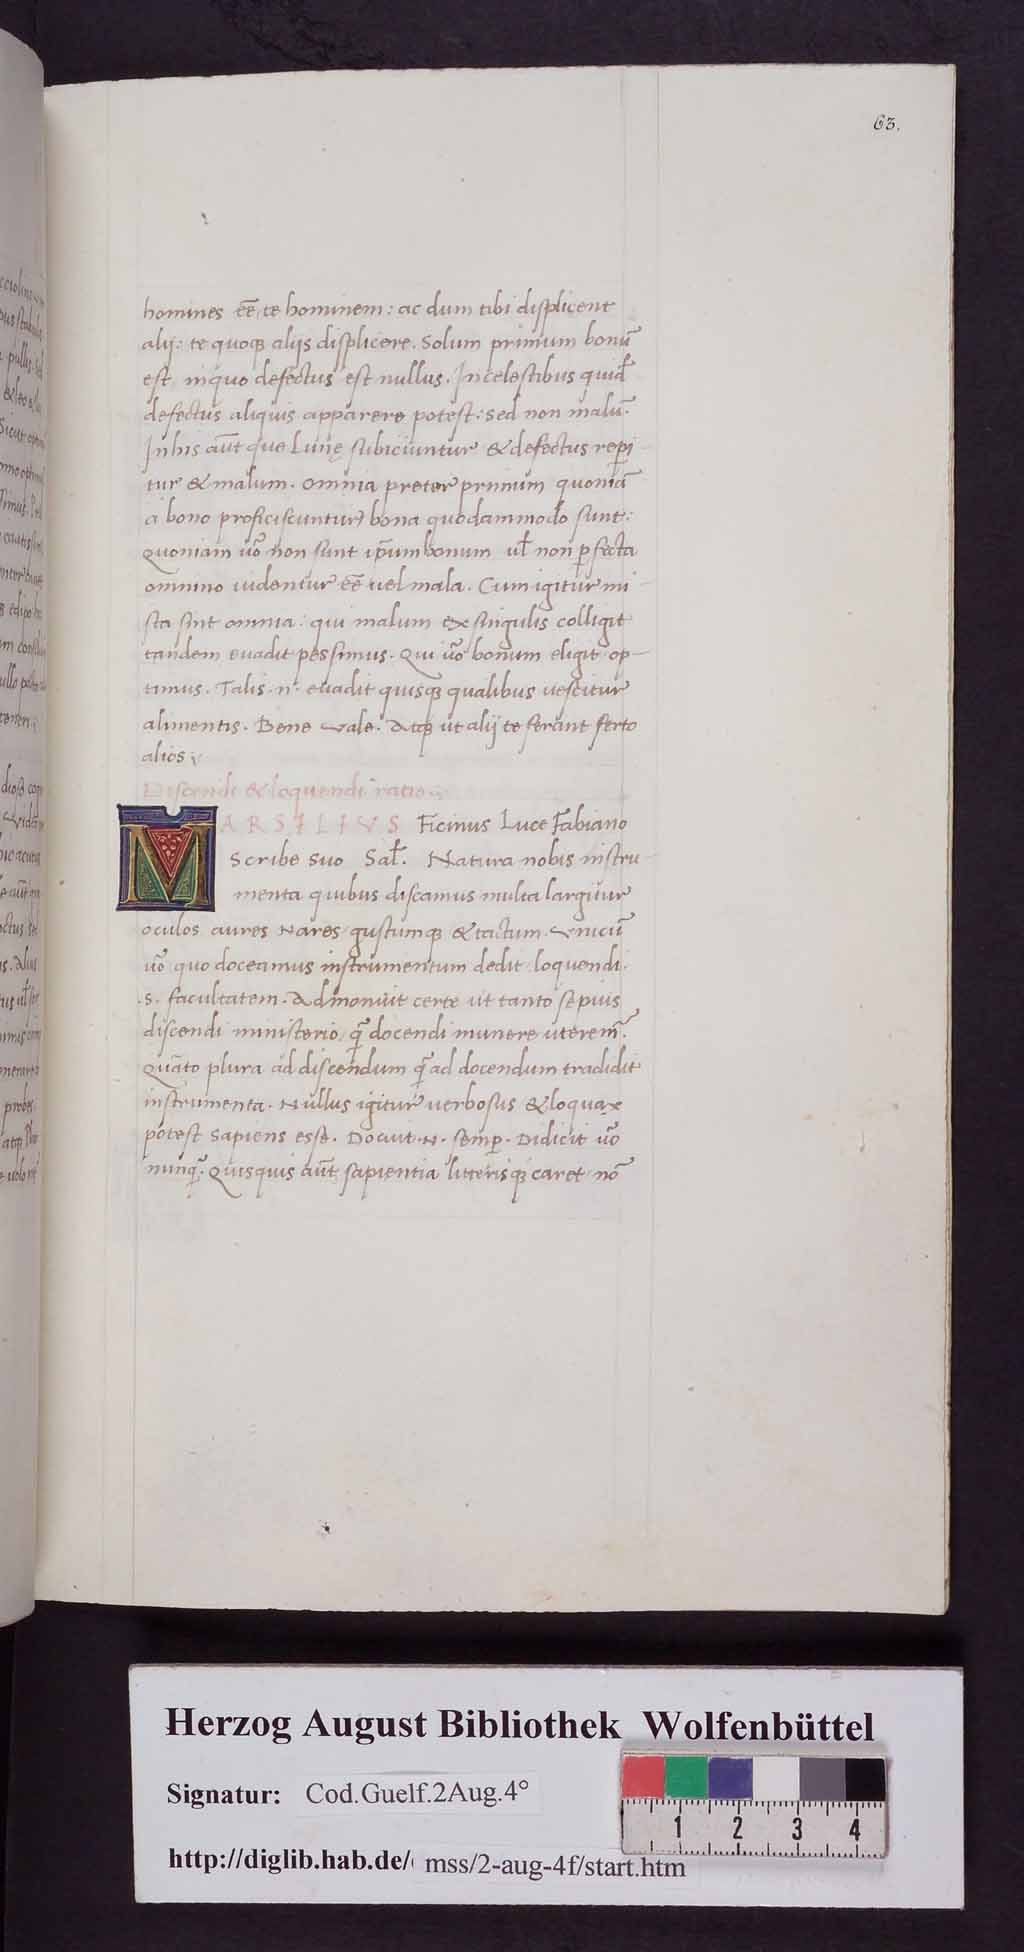 63.
homines eē, te hominem: ac dum tibi displicent
alij: te quoqꝫ alijs displicere. Solum primum bonū
est, inquo defectus est nullus. Incelestibus quid̄
defectus aliquis apparere potest: sed non malū.
Inhis aūt que Lunę subiciuntur & defectus repi-
tur & malum. omnia preter primum quoniā
a bono proficiscuntur, bona quodammodo sunt:
quoniam uō non sunt ip̄um bonum ul̄ non ꝑfecta
omnino uidentur eē uel mala. Cum igitur mi-
sta sint omnia: qui malum ex singulis colligit
tandem euadit pessimus. Qui uō bonum eligit op-
timus. Talis .n. euadit quisqꝫ qualibus uescitur
alimentis. Bene vale. Atqꝫ ut alij te ferant ferto
alios
Discendi & loquendi ratio
MARSILIVS Ficinus Luce Fabiano
Scribe suo Sal̄. Natura nobis instru-
menta quibus discamus multa largitur
oculos aures nares gustumqꝫ & tactum. vnicū
uō, quo doceamus instrumentum dedit loquendi
.s. facultatem. Admonuit certe ut tanto sepius
discendi ministerio, qꝫ̄ docendi munere uterem̄.
quāto plura ad discendum qꝫ̄ ad docendum tradidit
instrumenta. Nullus igitur uerbosus & loquax
potest sapiens esse. Docuit .n. semꝑ. Didicit uō
nunqꝫ̄. Quisquis aūt sapientia litterisqꝫ caret nō
Herzog August Bibliothek Wolfenbüttel
Signatur: Cod.Guelf.2Aug.4°
1 2 3 4
http://diglib.hab.de/ mss/2-aug-4f/start.htm